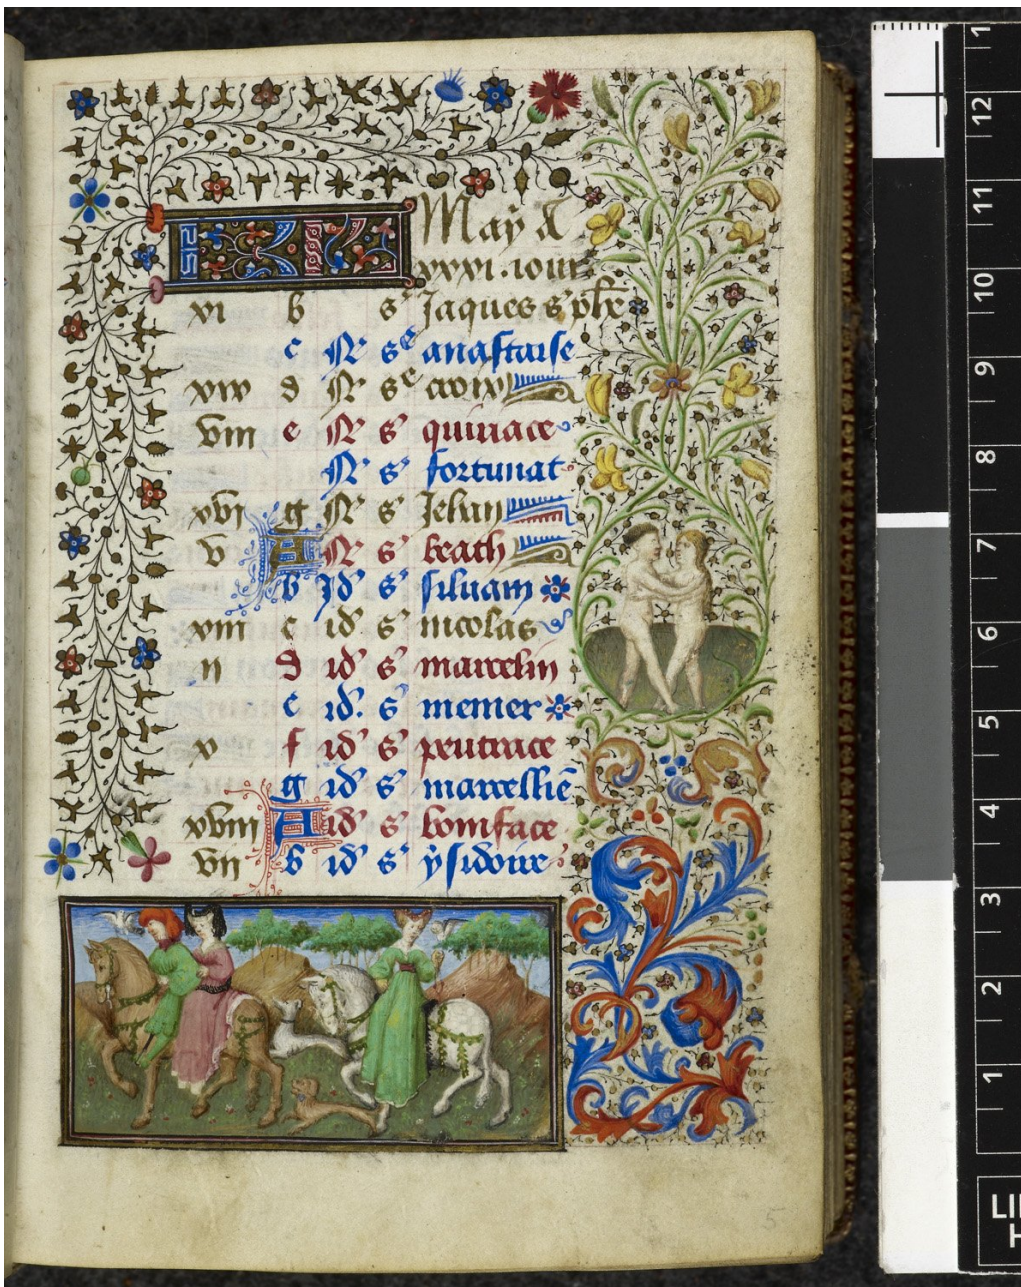 KL May a
xxxi. iours
xi b s Jaques s phe
c N se anastaise
xix d N se croix
viii e N s quiriace
N s fortunat
xvi g N s Jehan
v A N s beath
b Id s siluain
xiii c id s nicolas
ii d id s marcelin
e id. s memer
x f id s
g id s marcellie
xviii A id s boniface
vii b id s ysidoire
5
12
11
10
9
8
7
6
5
4
3
2
1